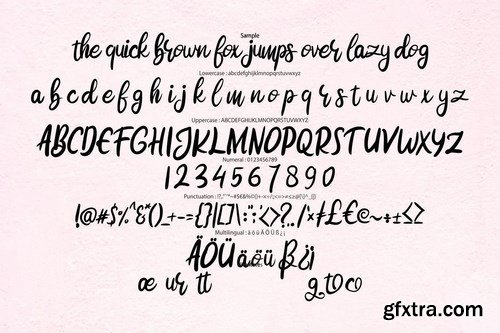 Sample
the quick brown fox jumps over lazy dog
Lowercase : abcdefghijklmnopqrstuvwxyz
a b c d e f g h i j k l m n o p q r s t u v w x y z
Uppercase : ABCDEFGHIJKLMNOPQRSTUVWXYZ
ABCDEFGHIJKLMNOPQRSTUVWXYZ
Numeral : 0123456789
1234567890
!@#$%^&*()_+-={}|[]\:<>?,./
Multilingual : ä ö ü Ä Ö Ü ß ¿ ¡
ÄÖÜ äöü ß ¿¡
œ ur tt g to co
gfxtra.com